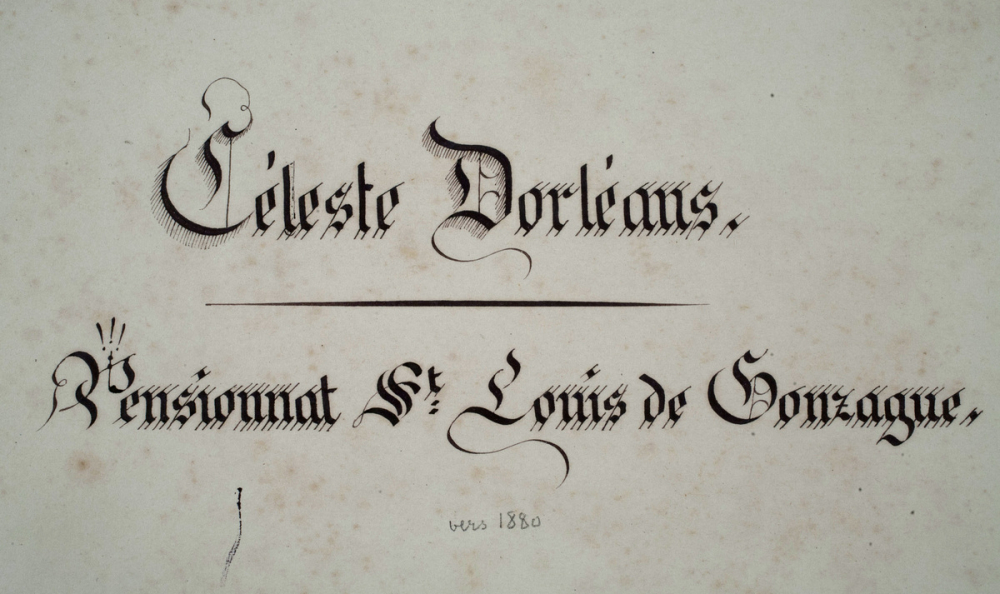 Céleste Dorléans.
Pensionnat St. Louis de Gonzague.
vers 1880